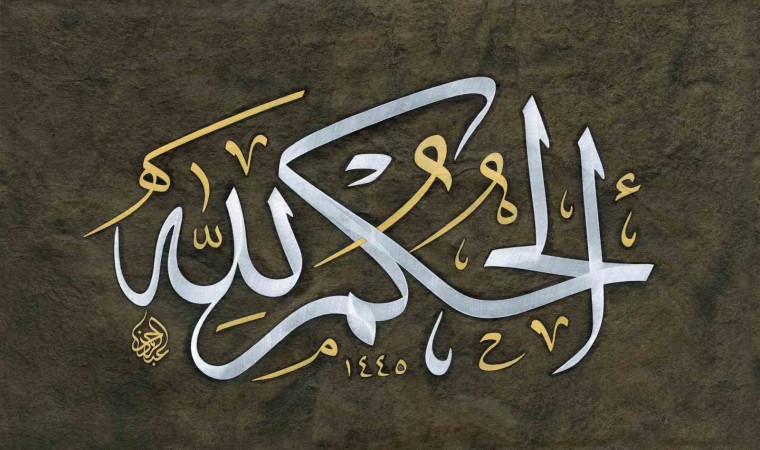 الحكم لله
١٤٤٥